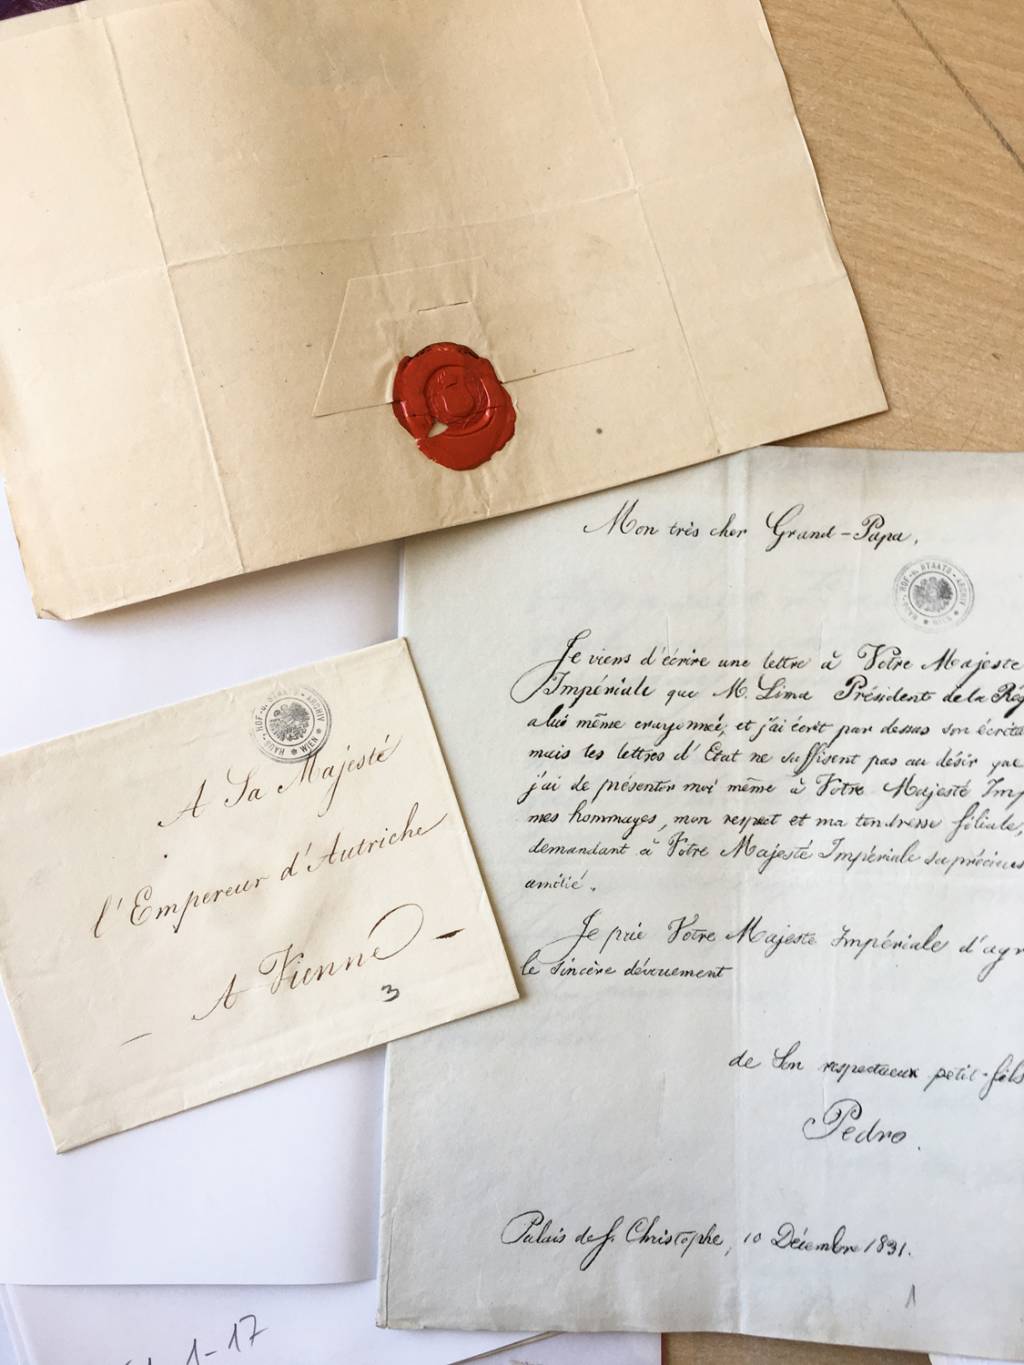 Mon très cher Grand-Papa,
HAUS- HOF- u. STAATS- ARCHIV WIEN
Je viens d'écrire une lettre à Votre Majeste
Impériale que M. Lima Président de la Rég
a lui même crayonnée, et j'ai écrit par dessus son écrita
mais les lettres d'Etat ne suffisent pas au désir que
j'ai de présenter moi même à Votre Majesté Imp
mes hommages, mon respect et ma tendresse filiale,
demandant à Votre Majesté Impériale sa précieus
amitié.
Je prie Votre Majeste Impériale d'agr
le sincère dévouement
de Son respectueux petit-fils
Pedro.
Palais de S. Christophe, 10 Décembre 1831.
1
HAUS- HOF- u. STAATS- ARCHIV WIEN
A Sa Majesté
l'Empereur d'Autriche
A Vienne
3
1-17